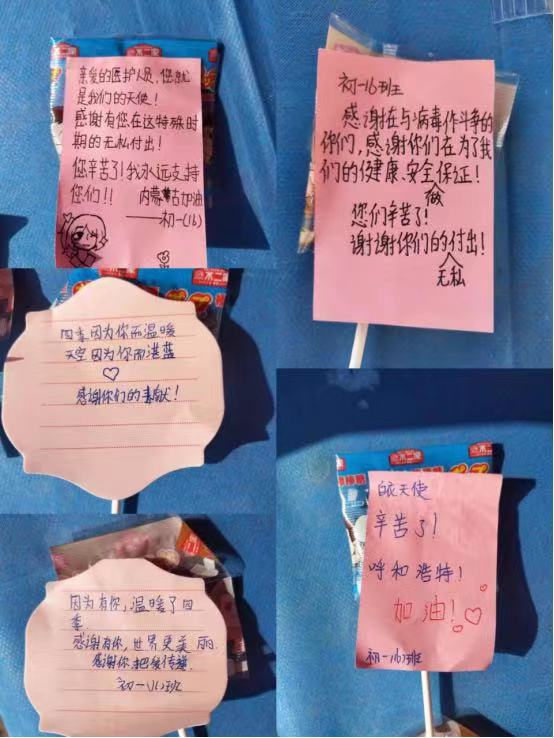 亲爱的医护人员,您就
是我们的天使!
感谢有您在这特殊时
期的无私付出!
您辛苦了!我永远支持
您们!! 内蒙古加油
——初一(16)
初一16班
感谢在与病毒作斗争的
你们,感谢你们在为了我
们的健康、安全做保证!
您们辛苦了!
谢谢你们的无私付出!
四季因为你而温暖
天空因为你而湛蓝
♡
感谢你们的奉献!
因为有你,温暖了四
季.
感谢有你,世界更美丽.
感谢你把爱传递.
初一(16)班
白衣天使
辛苦了!
呼和浩特!
加油!♡
初一16班